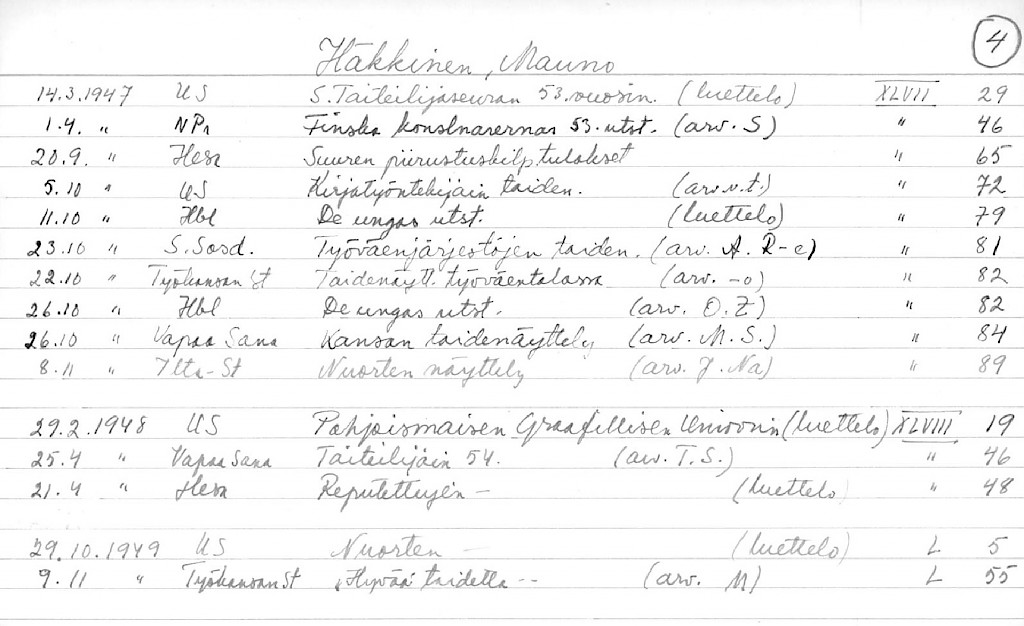 4
Häkkinen, Mauno
14.3.1947 US S.Taiteilijaseuran 53.vuosin. (luettelo) XLVII 29
1.4. " NPr Finska konstnärernas 53. utst. (arv. S) " 46
20.9. " Hesa Suuren piirustuskilp. tulokset " 65
5.10 " US Kirjatyöntekijäin taiden. (arv.v.t.) " 72
11.10 " Hbl De ungas utst. (luettelo) " 79
23.10 " S. Sosd. Työväenjärjestöjen taiden. (arv. A. R-e) " 81
22.10 " Työkansan St Taidenäytt. työväentalossa (arv. -o) " 82
26.10 " Hbl De ungas utst. (arv. O.Z) " 82
26.10 " Vapaa Sana Kansan taidenäyttely (arv. M.S.) " 84
8.11 " Ilta-St Nuorten näyttely (arv. J. Na) " 89
29.2.1948 US Pohjoismaisen Graafillisen Unionin (luettelo) XLVIII 19
25.4 " Vapaa Sana Taiteilijain 54. (arv. T.S.) " 46
21.4 " Hesa Reputettujen - (luettelo) " 48
29.10.1949 US Nuorten - (luettelo) L 5
9.11 " Työkansan St "Hyvää" taidetta -- (arv. M) L 55